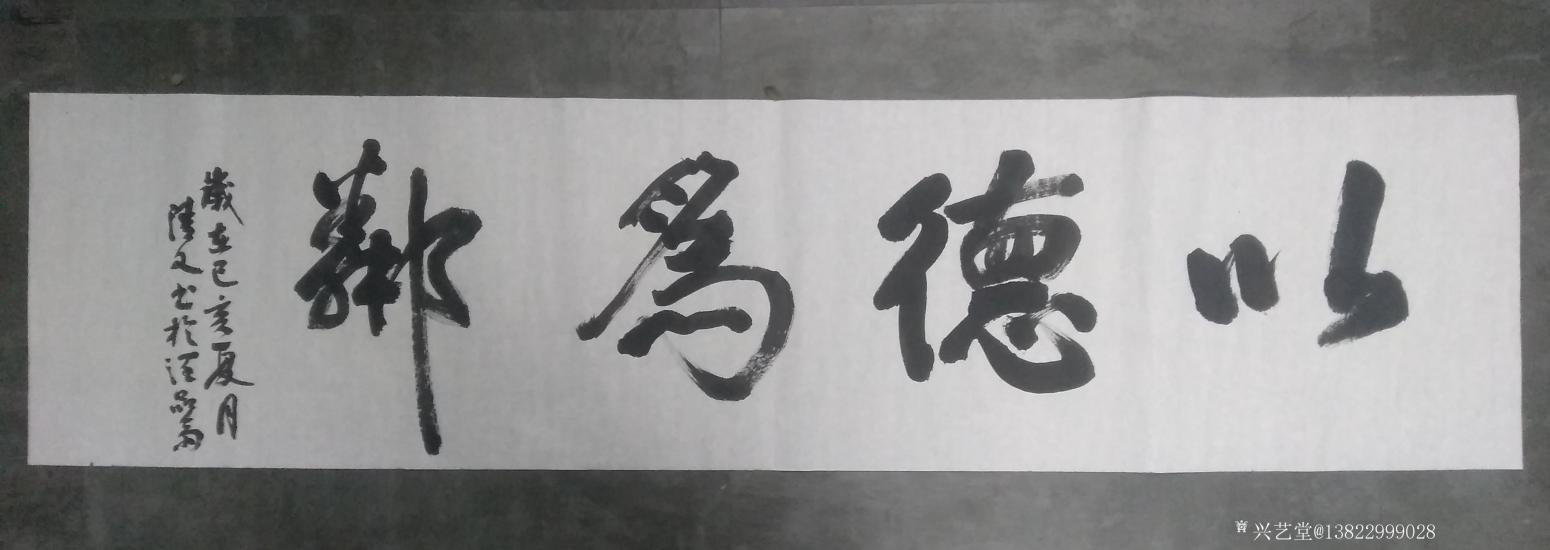 以德為鄰
歲在己亥夏月
陆文书於
兴艺堂@13822999028